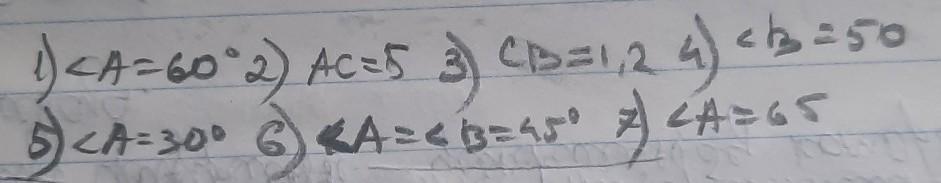 1) <A=60° 2) AC=5 3) CB=1,2 4) <B=50
5) <A=30° 6) <A=<B=45° 7) <A=65